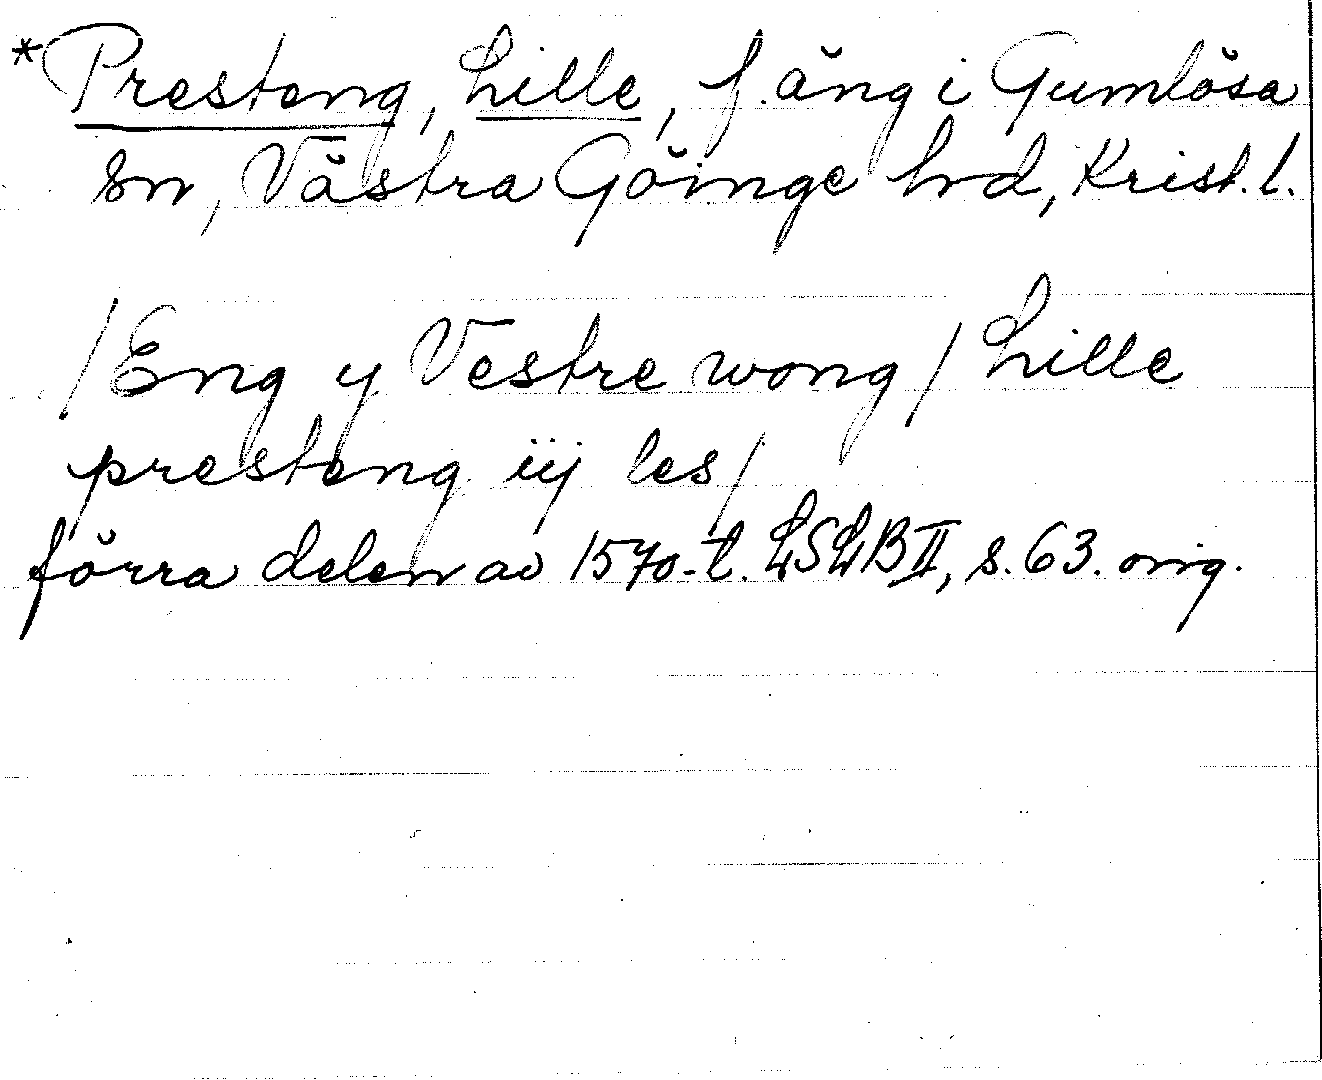 *Presteng, Lille, f. äng i Gumlösa
sn, Västra Göinge hrd, Krist. l.
/Eng y Vestre wong/ Lille
presteng iij les/
förra delen av 1570-t. LSLB II, s. 63. orig.